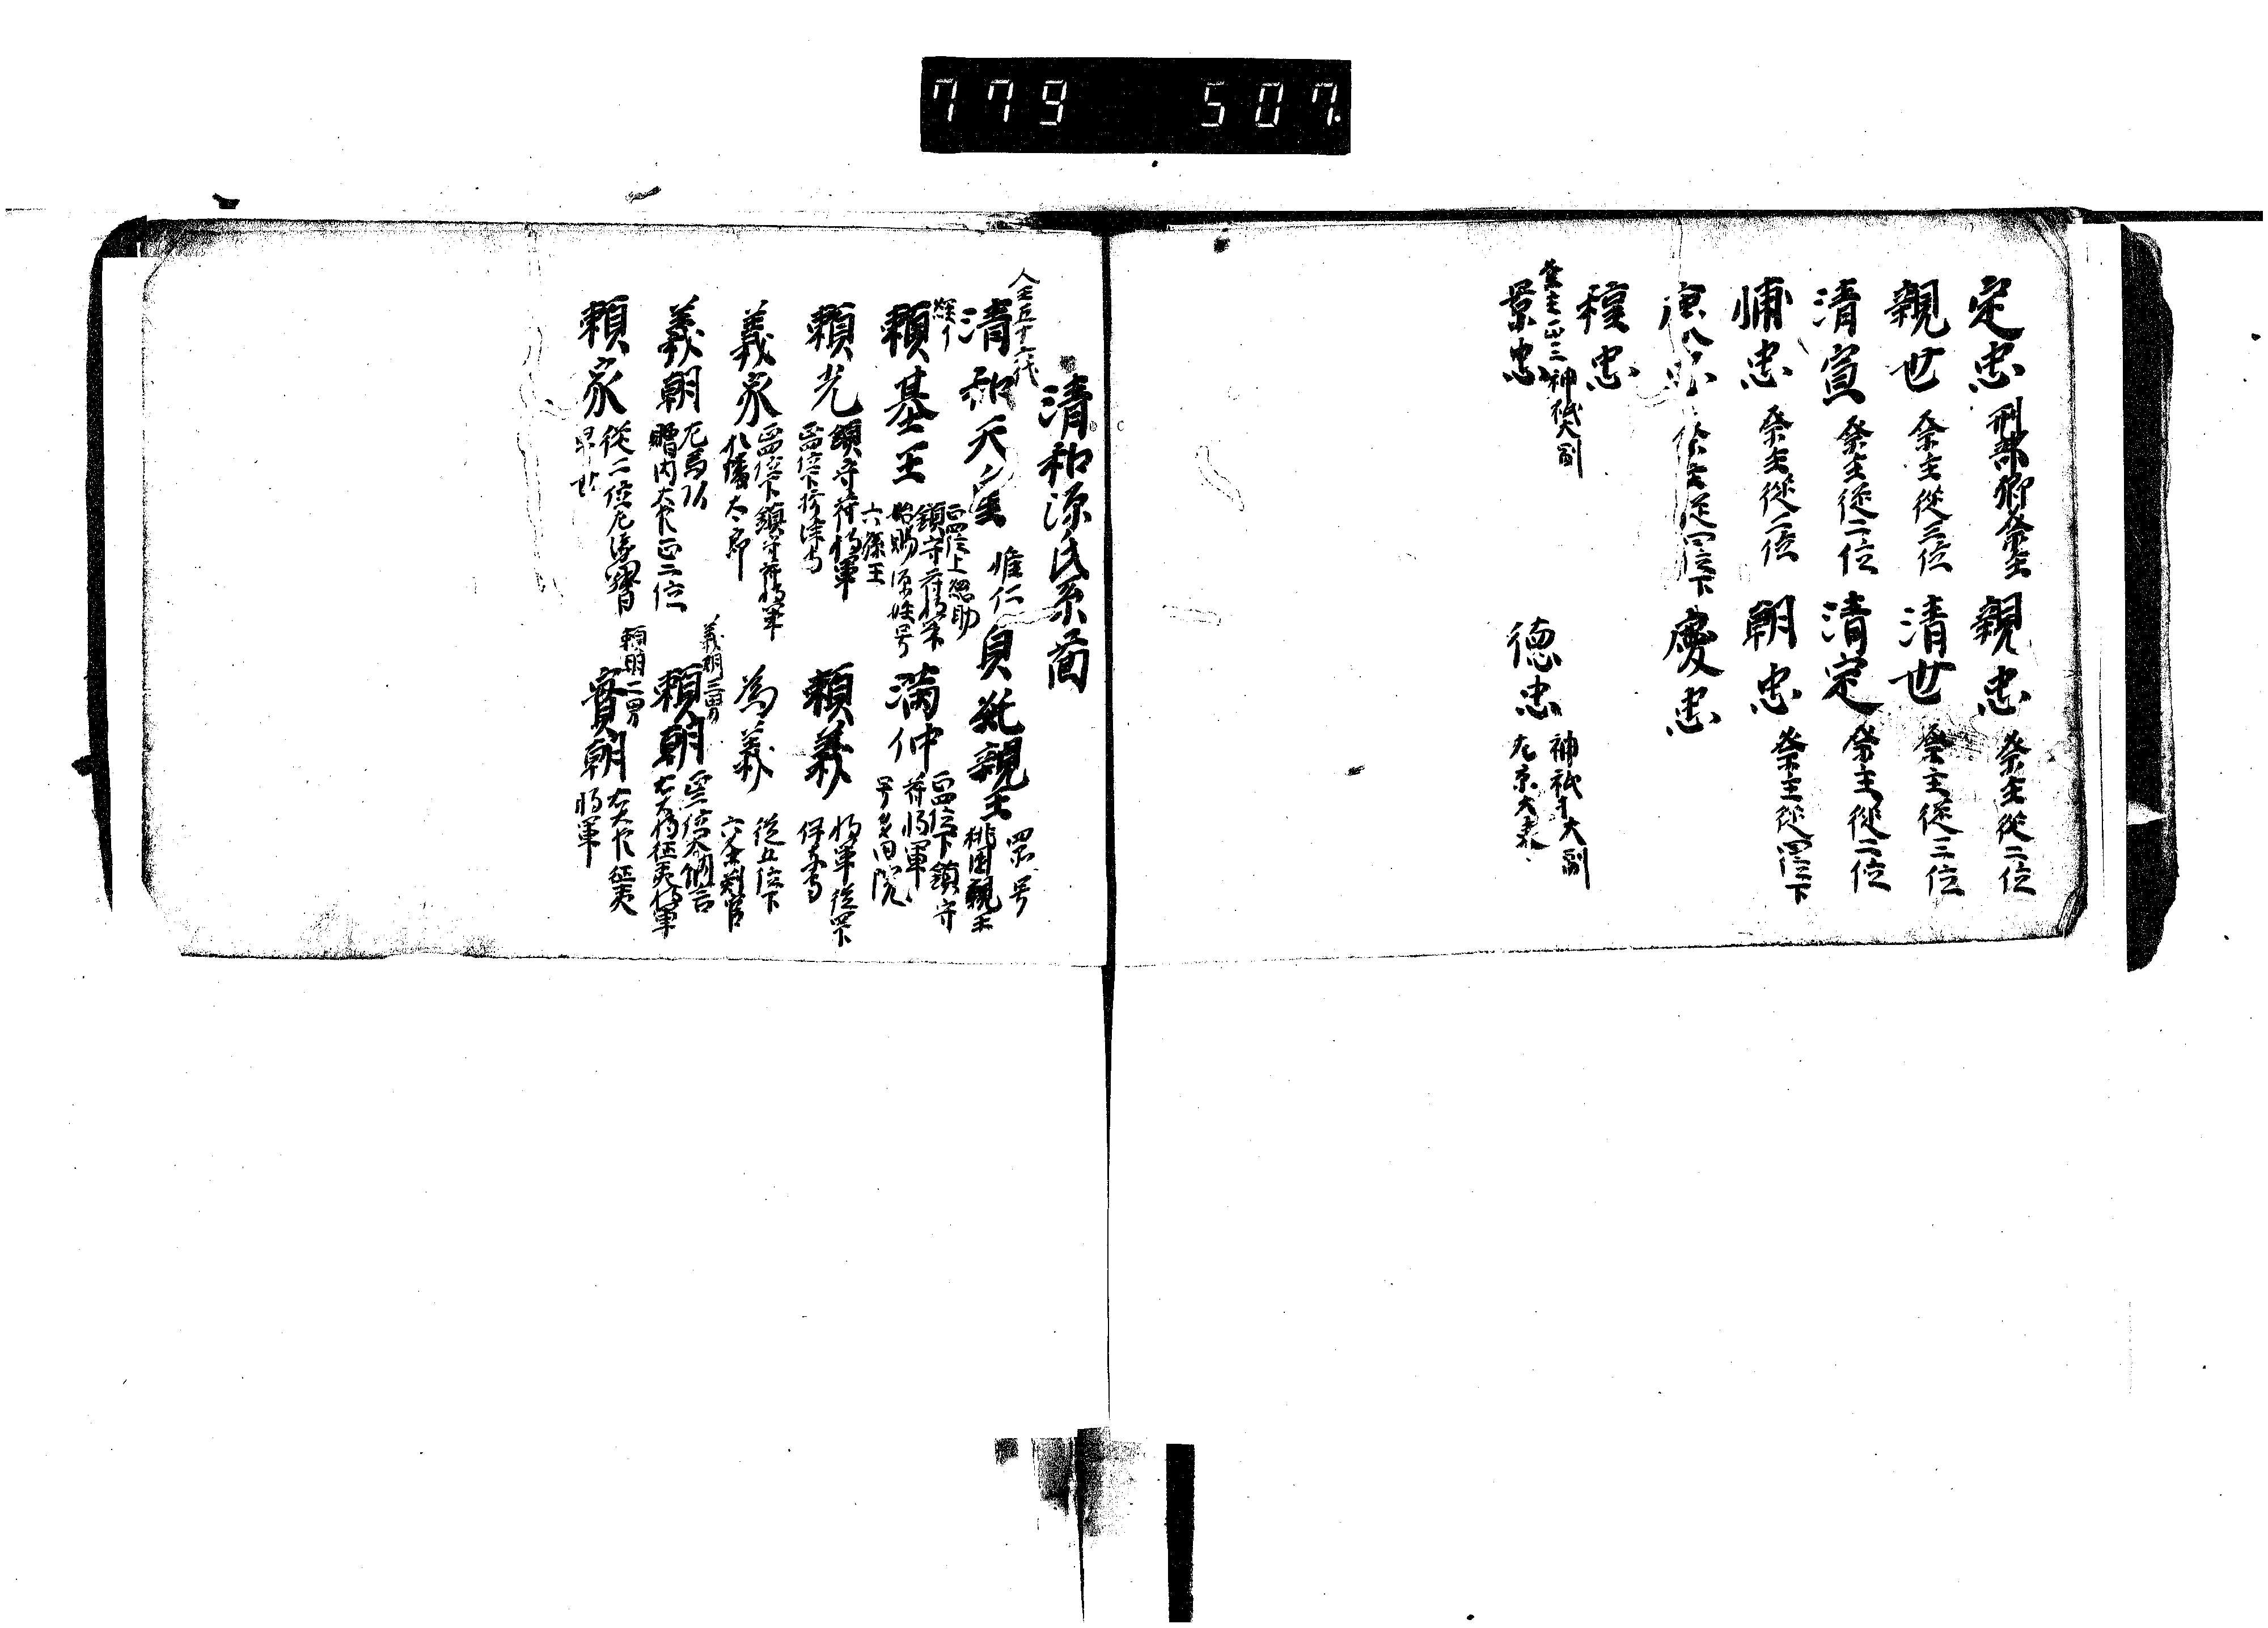 779 507
定忠 刑部卿祭主 親忠 祭主從二位
親世 祭主從三位 清世 祭主從三位
清宣 祭主從二位 清定 祭主從二位
祭主從二位 朝忠 祭主從四位下
忠 祭主從四位下 慶忠
忠
祭主正三 神祇大副
景忠 徳忠 神祇大副
左京大夫
清和源氏系啚
人王五十六代
清和天皇 惟仁 貞純親王 四品号
桃園親王
頼基王 正四位上
鎮守府将軍
始賜源姓号
六孫王
満仲 正四位下鎮守
府将軍
号多田院
頼光 鎮守府将軍
正四位下摂津守
頼義 将軍従四下
伊予守
義家 正四位下鎮守府将軍
八幡太郎
為義 従五位下
六条判官
義朝 左馬頭
贈内大臣正二位
義朝三男
頼朝 正二位大納言
右大将征夷将軍
頼家 従二位左馬督
早世
頼朝二男
實朝 右大臣征夷
将軍